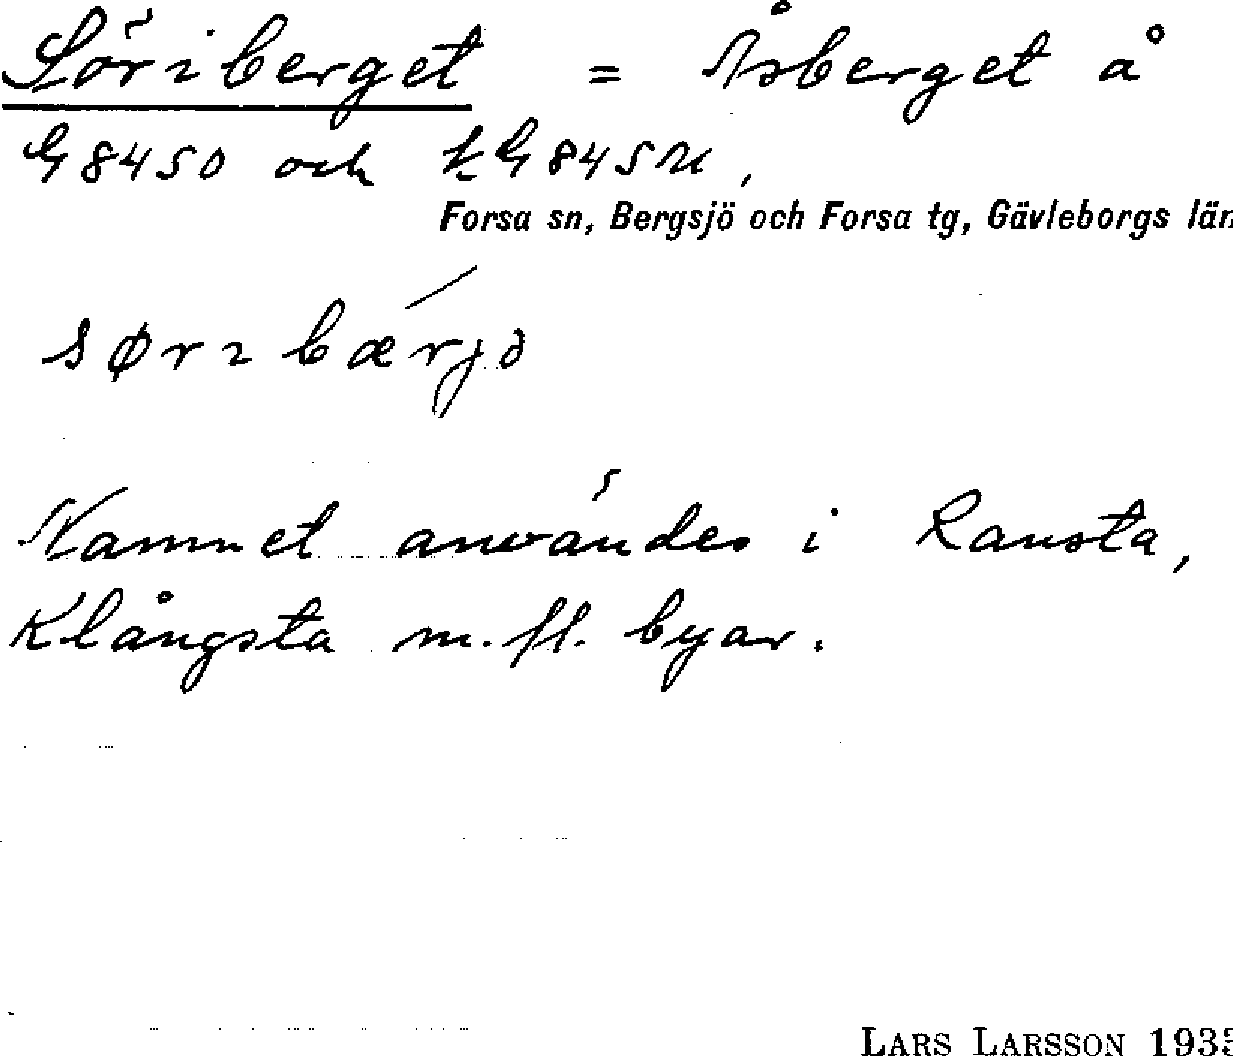 Söriberget = Åsberget å
G 8450 och
Forsa sn, Bergsjö och Forsa tg, Gävleborgs län
Namnet användes i Ransta,
Klångsta m. fl. byar.
LARS LARSSON 1935